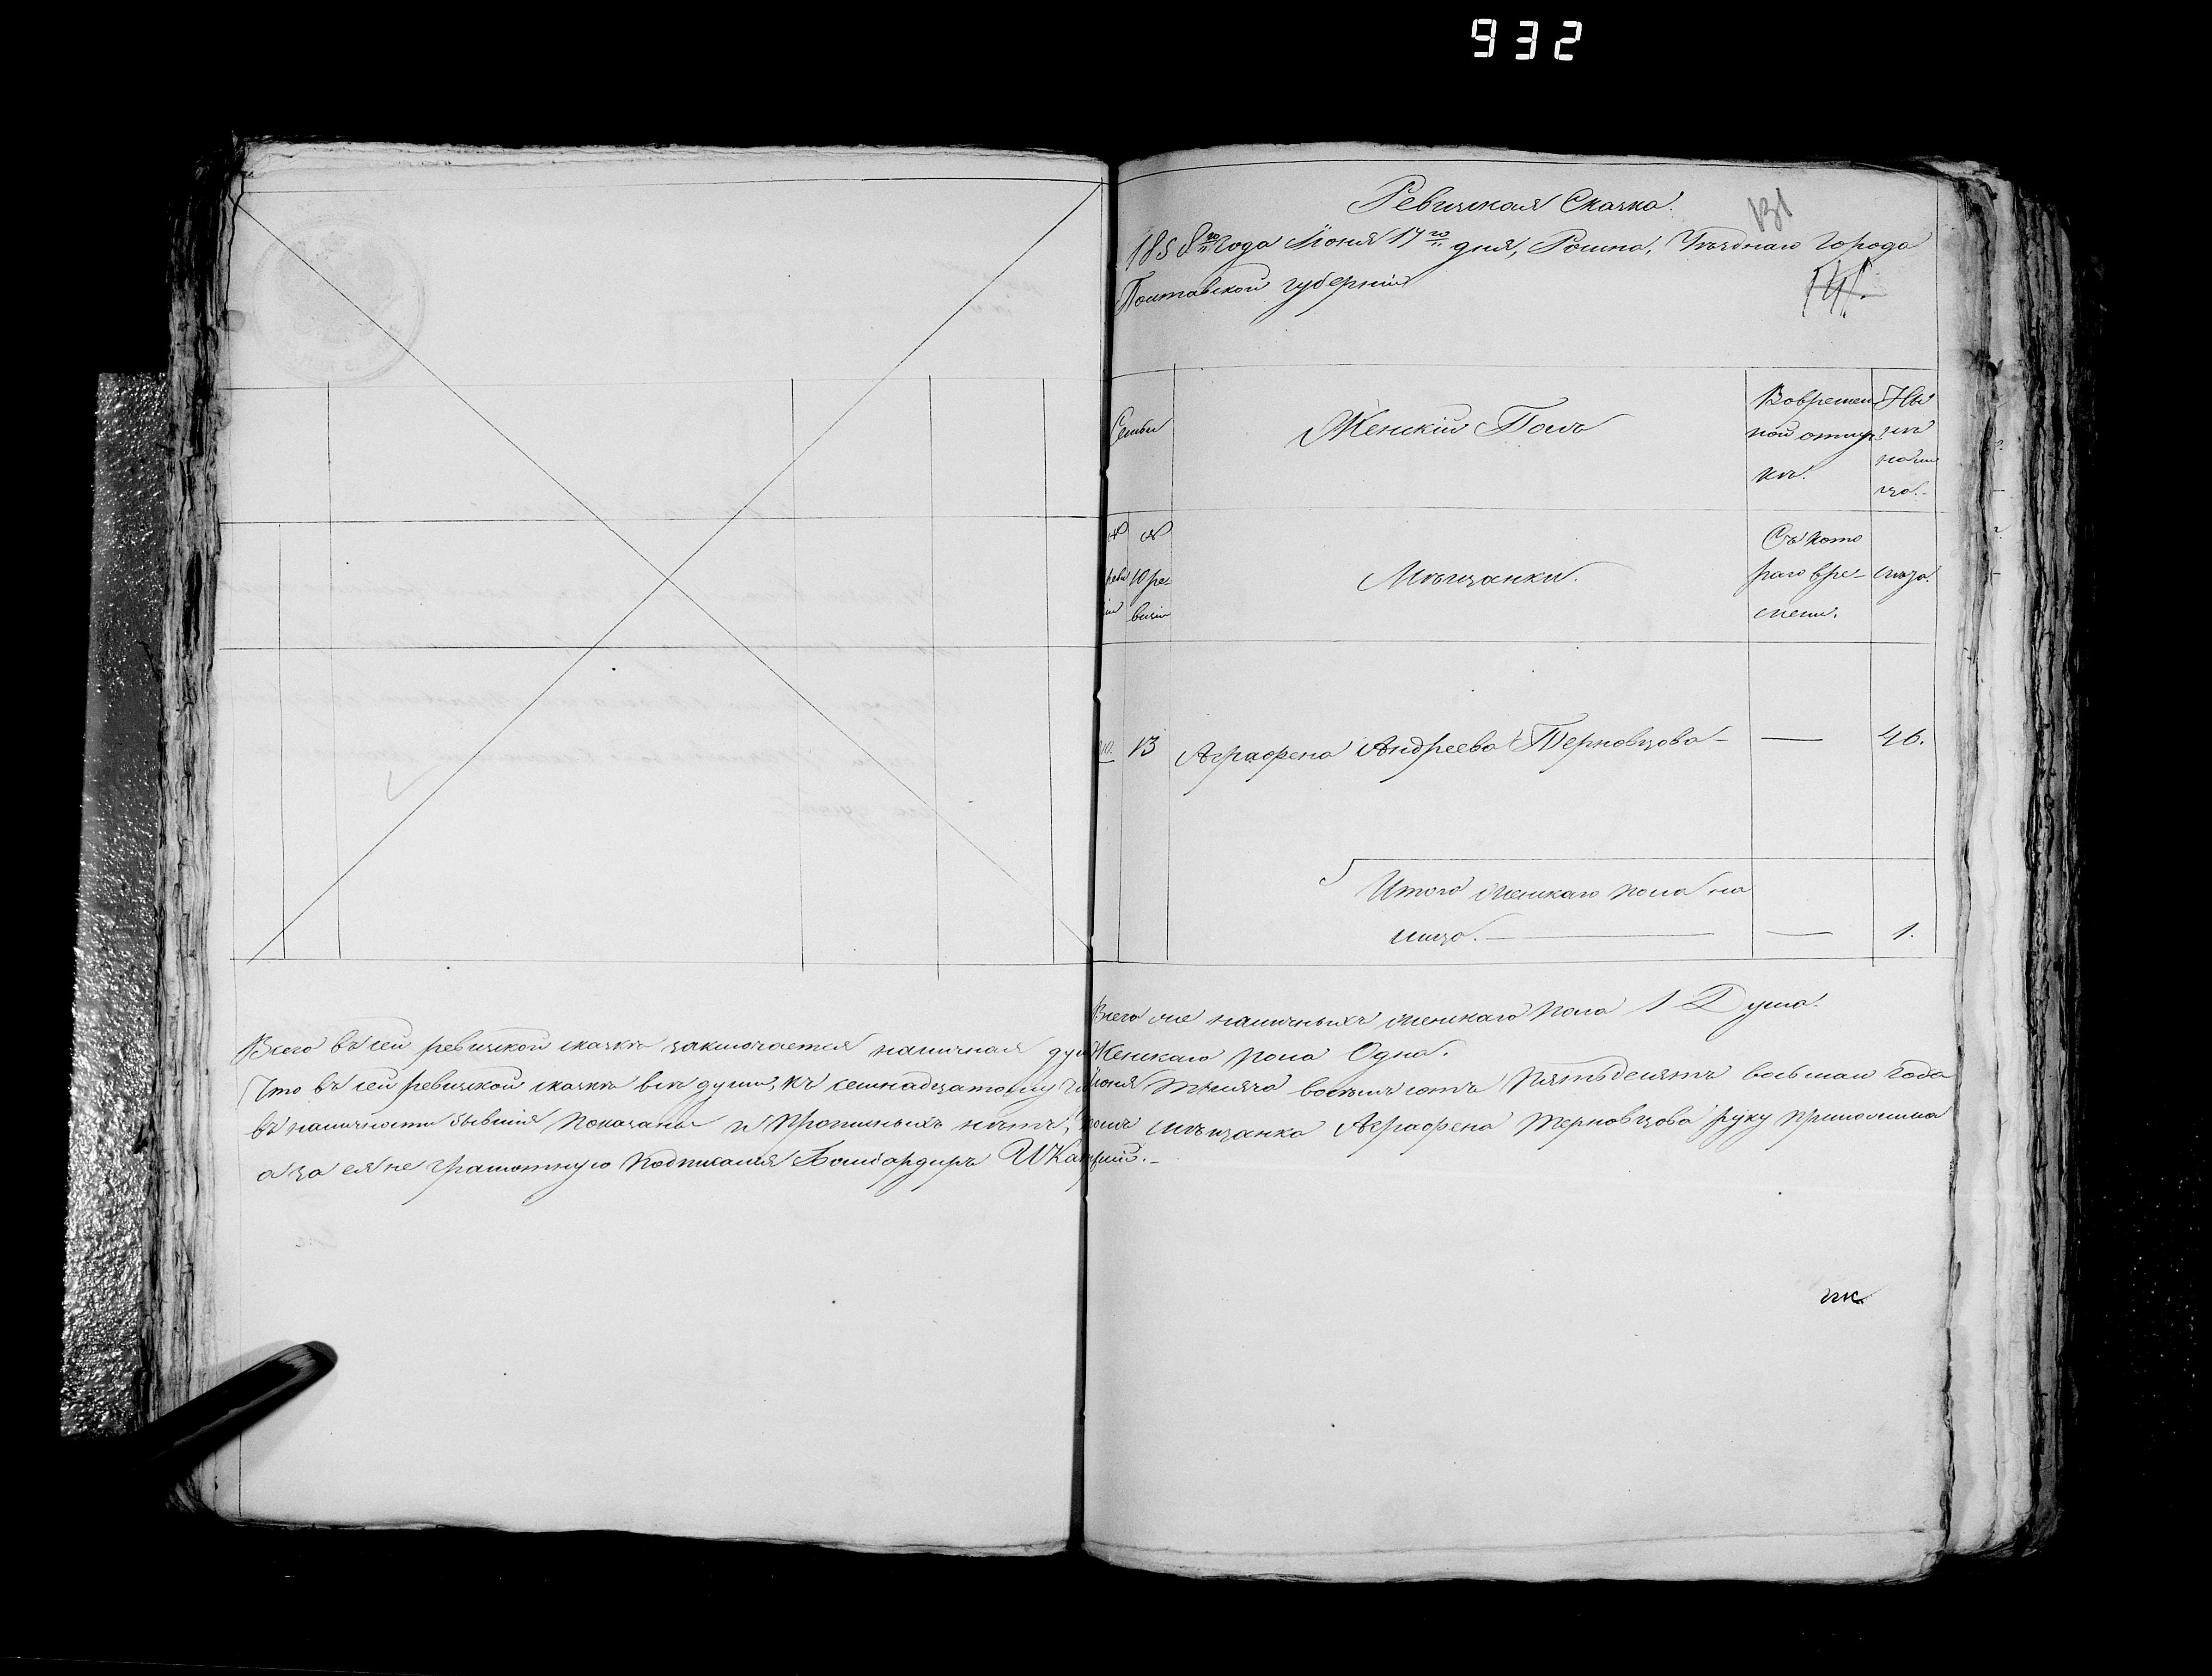 932
Ревизская Сказка.
131
1858го года Іюня 17го дня, Ромна, Уѣзднаго города
Полтавской губерніи
Семьи
Женскій Полъ
Вовремен
ной отлуч
кѣ.
Ны
нѣ
на ли
цо.
№
№
реви
зіи
10 ре
визіи
Мѣщанки.
Съ кото
раго вре-
мени.
Лѣта.
13 Аграфена Андреева Терновцова — — 46.
Итого женскаго пола на
лицо. — — 1.
Всего же наличныхъ женскаго пола 1 Душа.
Всего въ сей ревизской сказкѣ заключается наличная душа Женскаго пола Одна.
Что въ сей ревизской сказкѣ всѣ души, къ семнадцатому числу Іюня тысяча восемьсотъ пятьдесятъ восьмаго года
въ наличности бывшія показаны и прописныхъ нѣтъ, въ томъ мѣщанка Аграфена Терновцова руку приложила
а за ея не грамотную подписался Бомбардиръ